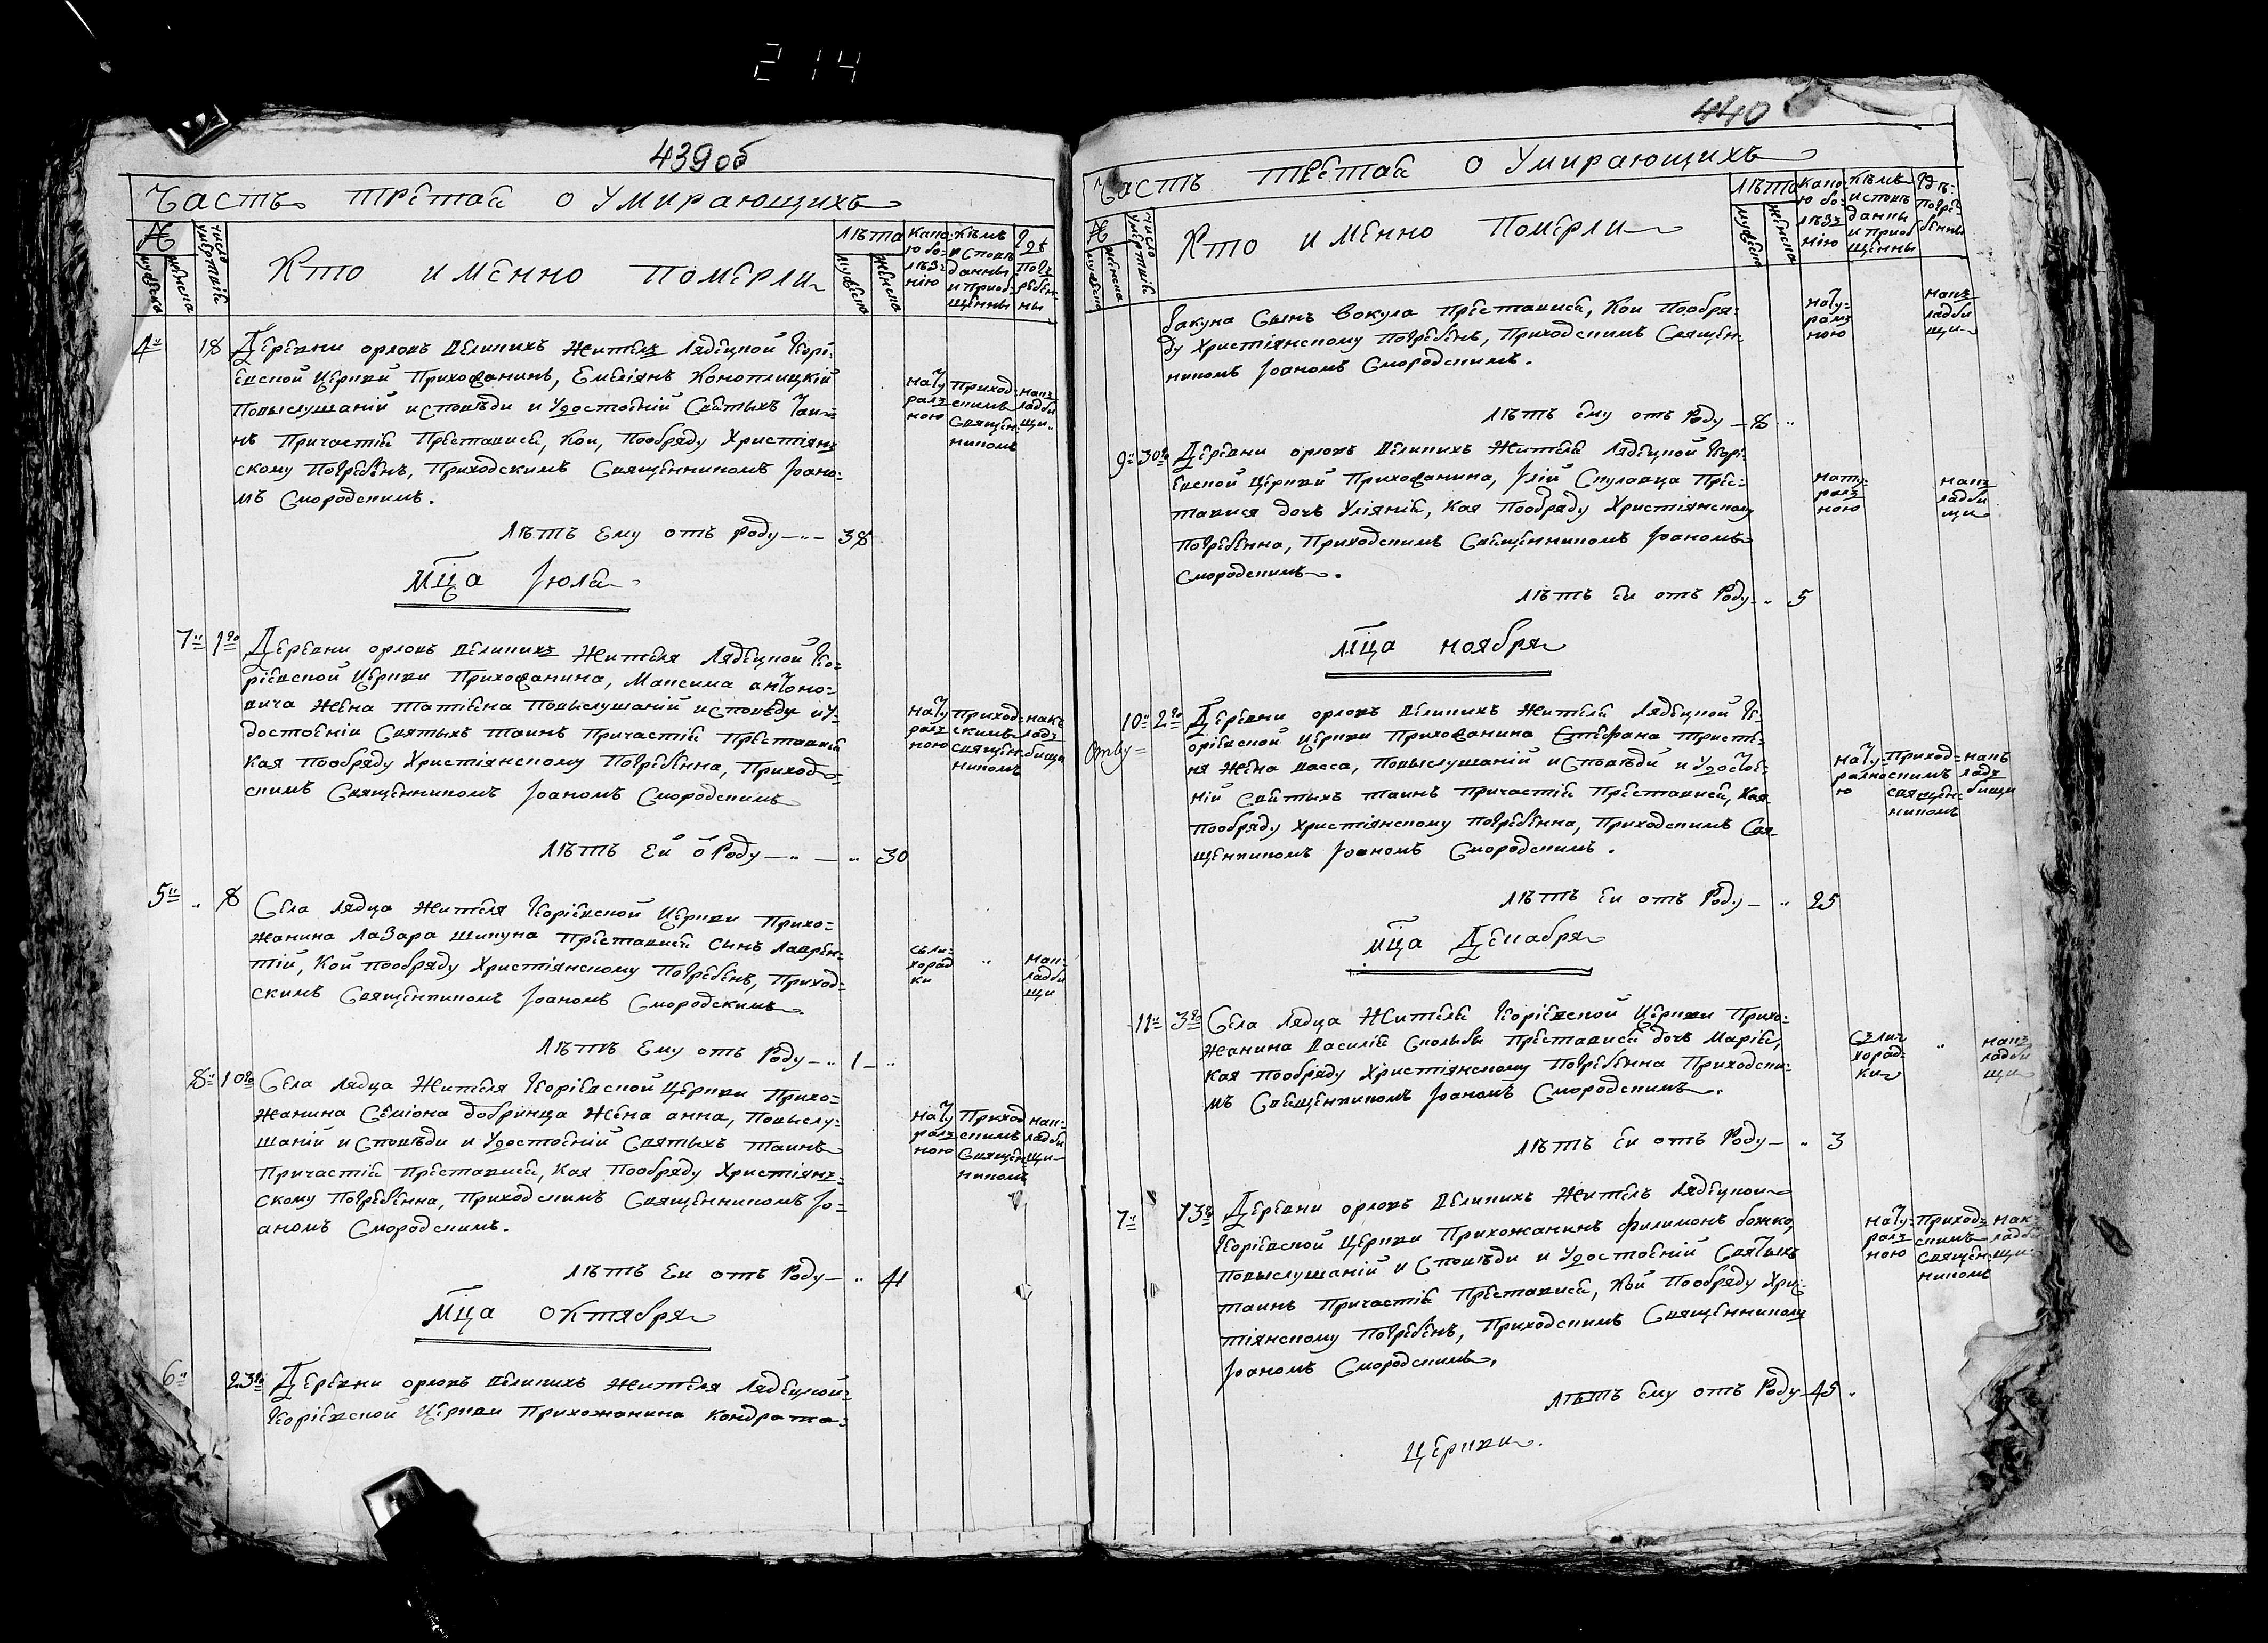 214
439об
Часть третая о Умирающихъ
№
мужеска
женска
число умертвія
Кто именно померли
лѣта
мужеска
женска
какою болѣзнію
кѣмъ исповѣданны и приобщенны
гдѣ погребенны
4 18 Деревни орловъ великихъ житель лядецкой Георі-
евской Церкви Прихожанинъ, Емеліянъ Коноплицкій
повыслушаніи исповѣди и Удостоеніи Святыхъ Таи-
нъ Причастія Преставися, кои, пообряду Христіян-
скому погребенъ, Приходскимъ Священникомъ Іоано-
мъ Смородскимъ.
натуралною
приходскимъ священникомъ
накладбищи
лѣтъ Ему отъ роду 38
мца Іюля
7 1го Деревни орловъ великихъ жителя лядецкой Гео-
ріевской Церкви Прихожанина, Максима антоно-
вича жена Татіена повыслушаніи исповѣди и У-
достоеніи Святыхъ таинъ Причастія Преставися
кая пообряду Христіянскому погребенна, Приход-
скимъ Священникомъ Іоаномъ Смородскимъ
натуралною
приходскимъ священникомъ
накъладъбищи
лѣтъ Ей ѿ Роду 30
5 8 Села лядца жителя Георіевской Церкви Прихо-
жанина лазара шикуна преставися синъ лаврен-
тій, кой пообряду Христіянскому погребенъ, Приход-
скимъ Священникомъ Іоаномъ Смородскимъ
сълихорадки
накладбищи
лѣтъ Ему отъ Роду 1
8 10го Села лядца жителя Георіевской Церкви Прихо-
жанина Семіона добринца жена анна, повыслу-
шаніи исповѣди и Удостоеніи Святыхъ таинъ
Причастія преставися, кая пообряду Христіян-
скому погребенна, Приходскимъ Священникомъ Іо-
аномъ Смородскимъ.
натуралною
приходскимъ священникомъ
накладбищи
лѣтъ Еи отъ Роду 41
мца октября
6 23го Деревни орловъ великихъ жителя лядецкой
Георіевской Церкви Прихожанина кондрата
440
Часть третая о Умирающихъ
№
мужеска
женска
число умертвія
Кто именно померли
лѣта
мужеска
женска
какою болѣзнію
кѣмъ исповѣданны и приобщенны
гдѣ погребенны
бакуна Сынъ вокула преставися, кои пообря-
ду Христіянскому погребенъ, Приходскимъ Священ-
никомъ Іоаномъ Смородскимъ.
натуралною
накладбищи
лѣтъ ему отъ Роду 8
9 30го Деревни орловъ великихъ жителя лядецкой Георі-
евской Церкви Прихожанина, Іліи Скуловца Прес-
тавися дочъ Уліянія, кая пообряду Христіянскому
погребенна, Приходскимъ Священникомъ Іоаномъ
Смородскимъ.
натуралною
накладбищи
лѣтъ еи отъ Роду 5
мца ноября
10 2го Деревни орловъ великихъ жителя лядецкой Ге-
оріевской Церкви Прихожанина Стефана тристе-
ня жена васса, повыслушаніи исповѣди и Удостое-
ніи святыхъ таинъ причастія Преставися, кая
пообряду христіянскому погребенна, Приходскимъ Свя-
щенникомъ Іоаномъ Смородскимъ.
натуралною
приходскимъ священникомъ
накъладъбищи
лѣтъ еи отъ Роду 25
мца Декабря
11 3го Села лядца жителя Георіевской Церкви Прихо-
жанина василія Сколыбы Преставися дочъ Марія,
кая пообряду Христіянскому погребенна Приходски-
мъ Священникомъ Іоаномъ Смородскимъ.
сълихорадки
накладбищи
лѣтъ еи отъ Роду 3
7 13го Деревни орловъ великихъ житель лядецкои
Георіевской Церкви Прихожанинъ филимонъ божко,
повыслушаніи исповѣди и Удостоеніи Святыхъ
таинъ Причастія Преставися, кой пообряду Хрис-
тіянскому погребенъ, Приходскимъ Священникомъ
Іоаномъ Смородскимъ.
натуралною
приходскимъ священникомъ
накладбищи
лѣтъ ему отъ Роду 45
Церкви